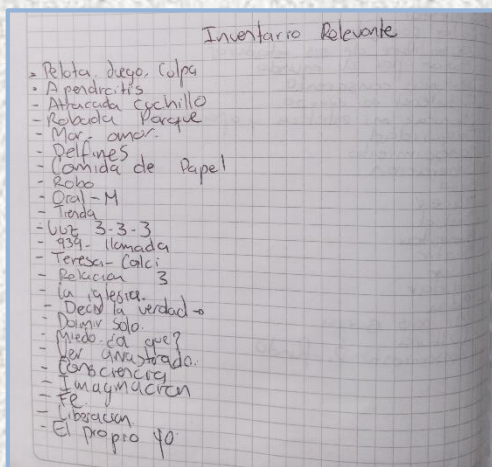 Inventario Relevante
- Pelota, Juego, Culpa
- Apendicitis
- Atracada Cuchillo
- Robada Parque
- Mar - amor.
- Delfines
- Comida de Papel
- Robo
- Oral - M
- Tienda
- Luz 3-3-3
- 939 - llamada
- Teresa - Calci
- Relacion 3
- La iglesia.
- Decir la verdad
- Dormir solo.
- Miedo ¿a que?
- Ser arrastrado.
- Consciencia
- Imaginacion
- Fe.
- Liberacion
- El propio yo